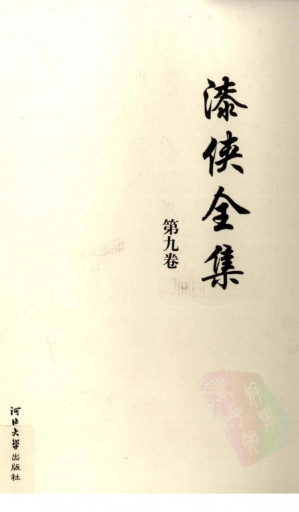 漆侠全集
第九卷
河北大学出版社